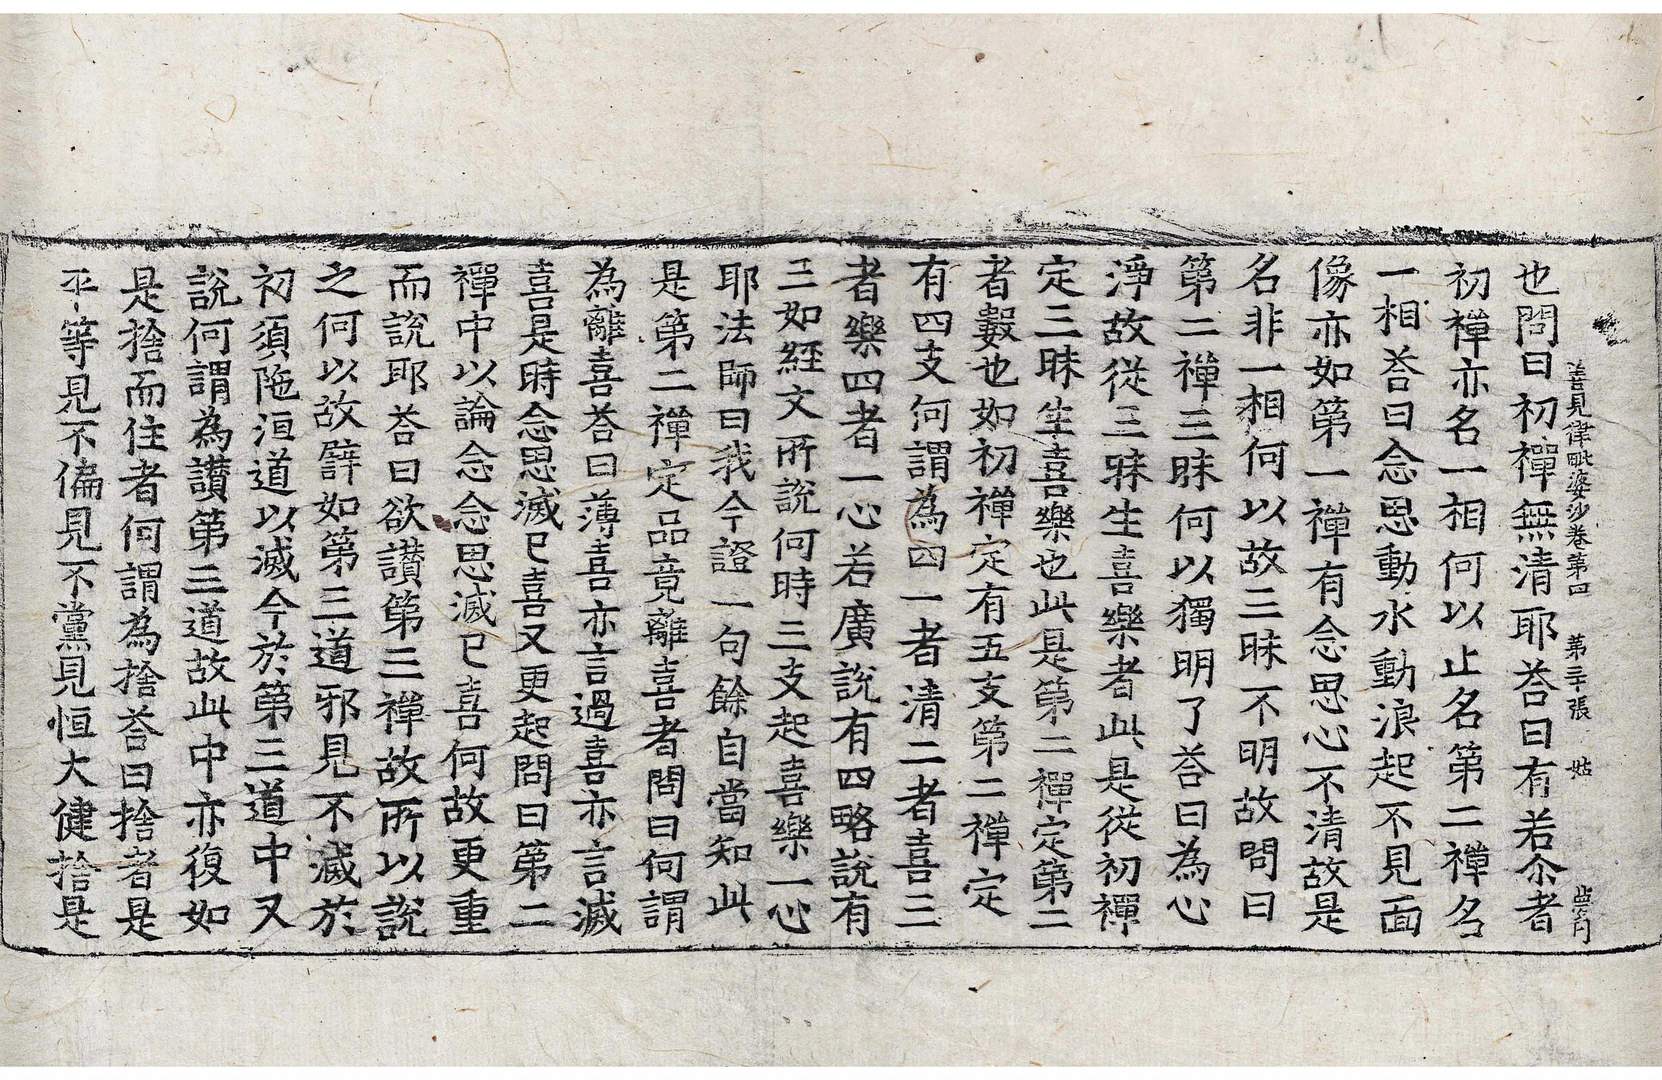 善見律毗婆沙卷第四 第二十張 姑
也問曰初禪無清耶荅曰有若尒者
初禪亦名一相何以止名第二禪名
一相荅曰念思動水動浪起不見面
像亦如第一禪有念思心不清故是
名非一相何以故三昧不明故問曰
第二禪三昧何以獨明了荅曰為心
淨故從三昧生喜樂者此是從初禪
定三昧生喜樂也此是第二禪定第二
者數也如初禪定有五支第二禪定
有四支何謂為四一者清二者喜三
者樂四者一心若廣說有四略說有
三如經文所說何時三支起喜樂一心
耶法師曰我今證一句餘自當知此
是第二禪定品竟離喜者問曰何謂
為離喜荅曰薄喜亦言過喜亦言滅
喜是時念思滅已喜又更起問曰第二
禪中以論念念思滅已喜何故更重
而說耶荅曰欲讃第三禪故所以說
之何以故譬如第三道邪見不滅於
初須陁洹道以滅今於第三道中又
說何謂為讃第三道故此中亦復如
是捨而住者何謂為捨荅曰捨者是
平等見不偏見不黨見恒大健捨是